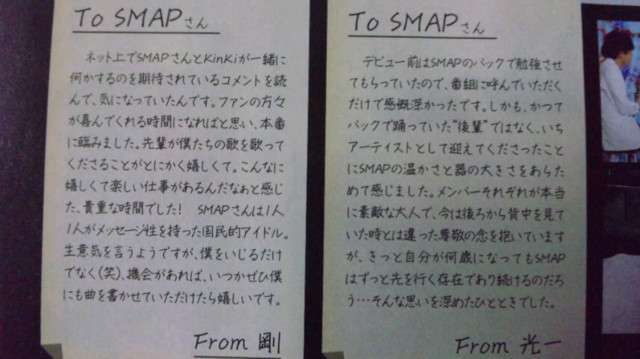 To SMAPさん
ネット上でSMAPさんとKinKiが一緒に
何かするのを期待されているコメントを読
んで、気になっていたんです。ファンの方々
が喜んでくれる時間になればと思い、本番
に臨みました。先輩が僕たちの歌を歌って
くださることがとにかく嬉しくて。こんなに
嬉しくて楽しい仕事があるんだなぁと感じ
た、貴重な時間でした! SMAPさんは1人
1人がメッセージ性を持った国民的アイドル。
生意気を言うようですが、僕をいじるだけ
でなく(笑)、機会があれば、いつかぜひ僕
にも曲を書かせていただけたら嬉しいです。
From 剛
To SMAPさん
デビュー前はSMAPのバックで勉強させ
てもらっていたので、番組に呼んでいただく
だけで感慨深かったです。しかも、かつて
バックで踊っていた“後輩”ではなく、いち
アーティストとして迎えてくださったこと
にSMAPの温かさと器の大きさをあらた
めて感じました。メンバーそれぞれが本当
に素敵な大人で、今は後ろから背中を見て
いた時とは違った尊敬の念を抱いています
が、きっと自分が何歳になってもSMAP
はずっと先を行く存在であり続けるのだろ
う…そんな思いを深めたひとときでした。
From 光一